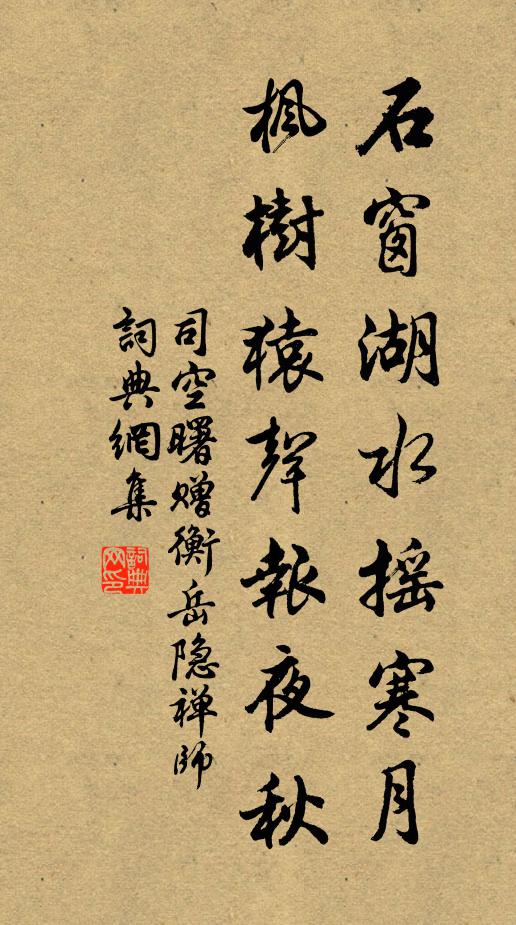 石窗湖水摇寒月
枫樹猿聲報夜秋
司空曙赠衡岳隐禅師
詞典網集
詞典网印